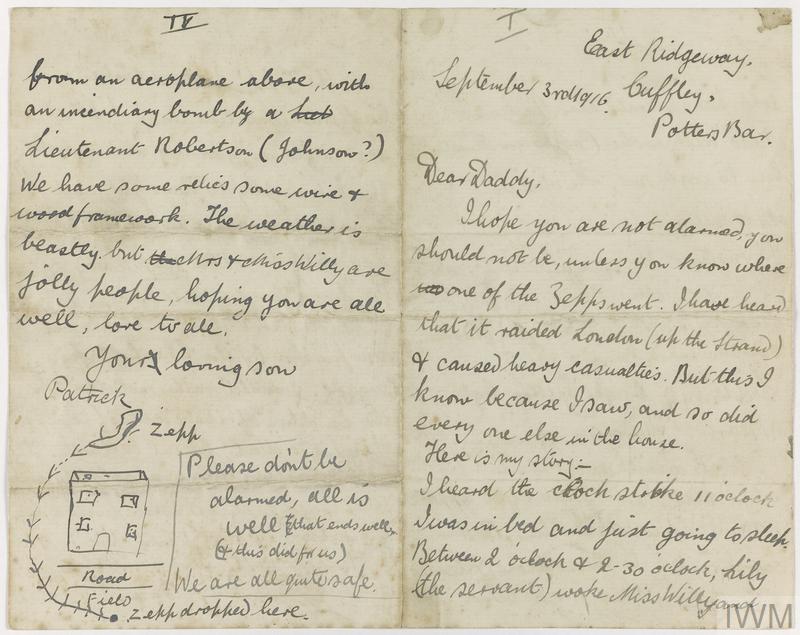 I
East Ridgeway,
September 3rd 1916. Cuffley,
Potters Bar.
Dear Daddy,
I hope you are not alarmed, you
should not be, unless you know where
one of the Zepps went. I have heard
that it raided London (up the Strand)
& caused heavy casualties. But this I
know because I saw, and so did
every one else in the house.
Here is my story:-
I heard the clock strike 11 o'clock
I was in bed and just going to sleep.
Between 2 o'clock & 2-30 o'clock, Lily
(the servant) woke Miss Willy and
IV
from an aeroplane above, with
an incendiary bomb by a
Lieutenant Robertson (Johnson?)
We have some relics some wire &
wood framework. The weather is
beastly, but the Mrs & Miss Willy are
jolly people, hoping you are all
well, love to all.
Yours loving son
Patrick
Zepp
Please don't be
alarmed, all is
well (that ends well,
(& this did for us)
We are all quite safe.
Road
Field
Zepp dropped here.
IWM